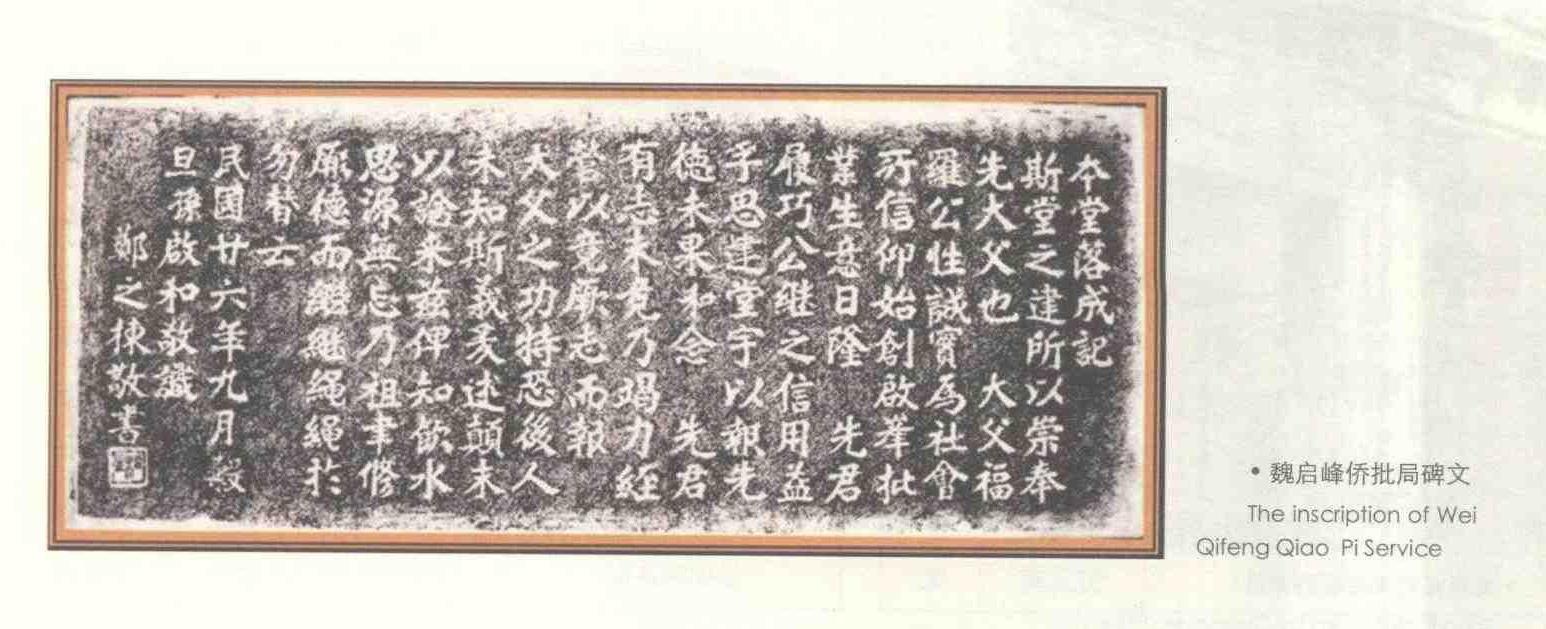 本堂落成記
斯堂之建所以崇奉
先大父也　大父福
羅公性誠實為社會
所信仰始創啟峯批
業生意日隆　先君
履巧公继之信用益
孚思建堂宇以報先
德未果和念　先君
有志未竟乃竭力經
營以竟厥志而報
大父之功特恐後人
未知斯義爰述顛末
以諗来兹俾知飲水
思源無忘乃祖聿修
厥德而繼繼繩繩於
勿替云
民國廿六年九月穀
旦孫啟和敬識
鄭之棟敬書
• 魏启峰侨批局碑文
The inscription of Wei
Qifeng Qiao Pi Service